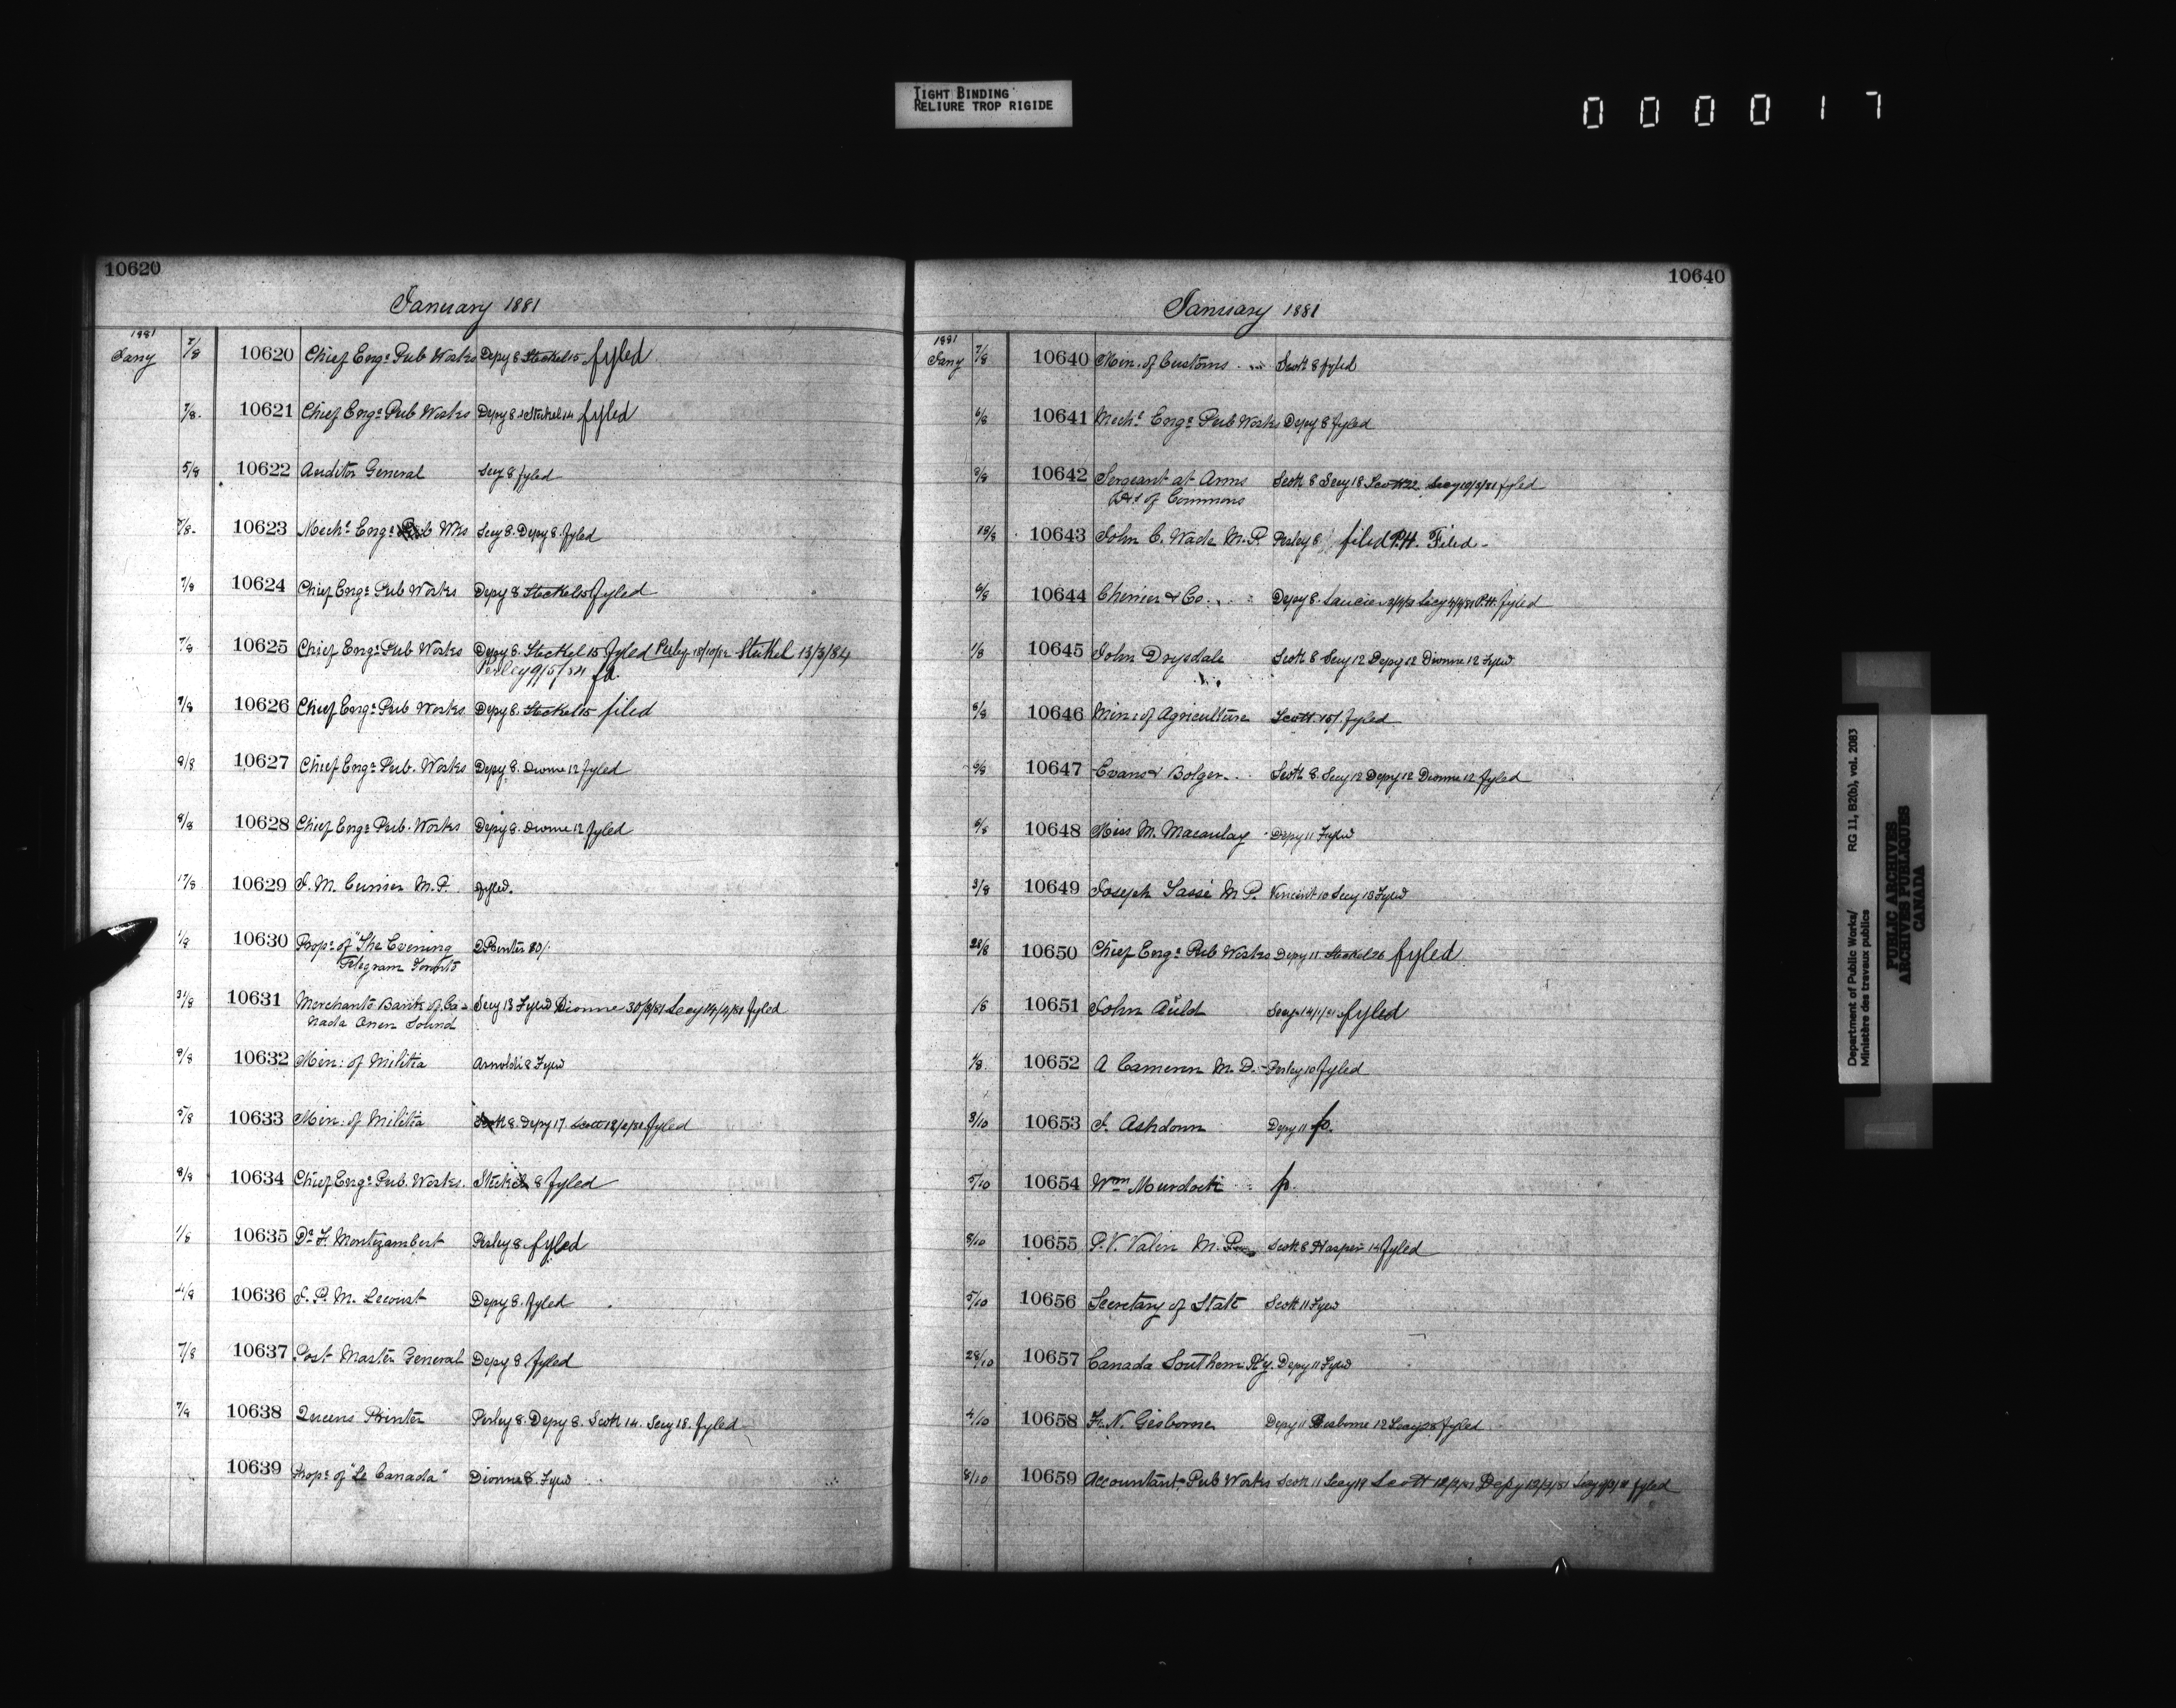 TIGHT BINDING
RELIURE TROP RIGIDE
000017
10620
January 1881
1881
Jany 7/8 10620 Chief Engr Pub Works Depy 8 Steckel 15 fyled
7/8. 10621 Chief Engr Pub Works Depy 8. Steckel 14 fyled
5/8 10622 Auditor General Secy 8 fyled
7/8- 10623 Mechl Engr Pub Wks Secy 8. Depy 8. fyled
7/8 10624 Chief Engr Pub Works Depy 8 Steckel 15 fyled
7/8 10625 Chief Engr Pub Works Depy 8. Steckel 15 fyled Perley 18/10/82 Steckel 13/3/84
Perley 9/5/84 fd.
7/8 10626 Chief Engr Pub Works Depy 8. Steckel 15 filed
8/8 10627 Chief Engr Pub. Works Depy 8. Dionne 12 fyled
8/8 10628 Chief Engr Pub. Works Depy 8. Dionne 12 fyled
17/8 10629 J. M. Currier M.P. fyled.
1/8 10630 Propr of "The Evening Q Printer 80/.
Telegram Toronto
31/8 10631 Merchants Bank of Ca- Secy 13 Fyled Dionne 30/3/81 Secy 14/4/81 fyled
nada Owen Sound
8/8 10632 Min: of Militia Arnoldi 8 Fyled
5/8 10633 Min: of Militia Scott 8. Depy 17. Scott 18/2/81 fyled
8/8 10634 Chief Engr Pub. Works. Steckel 8 fyled
1/8 10635 Dr F. Montizambert Perley 8. fyled
4/8 10636 J. P. M. Lecourt Depy 8. fyled
7/8 10637 Post Master General Depy 8. fyled
7/8 10638 Queens Printer Perley 8. Depy 8. Scott 14. Secy 18. fyled
10639 Propr of "Le Canada" Dionne 8. Fyled
10640
January 1881
1881
Jany 7/8 10640 Min. of Customs Scott 8 fyled
6/8 10641 Mechl Engr Pub Works Depy 8 fyled
8/8 10642 Sergeant at Arms Scott 8 Secy 18 Scott 22 Secy 10/3/81 fyled
of Commons
18/8 10643 John C. Wade M.P. Perley 8 filed P.H. Filed-
6/8 10644 Chinier & Co. Depy 8. Saucier Secy P.H. fyled
1/8 10645 John Drysdale Scott 8 Secy 12 Depy 12 Dionne 12 Fyled
8/8 10646 Min: of Agriculture Scott 15/. fyled
6/8 10647 Evans & Bolger Scott 8. Secy 12 Depy 12 Dionne 12 fyled
6/8 10648 Miss M. Macaulay Depy 11 Fyled
3/8 10649 Joseph Tassé M.P. Vincent 10 Secy 13 Fyled
22/8 10650 Chief Engr Pub Works Depy 11 Steckel 26 fyled
/8 10651 John Auld Secy 14/1/81 fyled
4/8 10652 A Cameron M.D. Perley 10 fyled
3/10 10653 J. Ashdown Depy 11 fo.
5/10 10654 Wm Murdock fo.
8/10 10655 P.V. Valin M.P. Scott 8 Harper 14 fyled
5/10 10656 Secretary of State Scott 11 Fyled
28/10 10657 Canada Southern Ry. Depy 11 Fyled
4/10 10658 F. N. Gisborne Depy 11 Gisborne 12 Secy 28 fyled
8/10 10659 Accountant Pub Works Scott 11 Secy 19 Scott 12/2/81 Depy 12/2/81 Secy fyled
Department of Public Works/ RG 11, B2(b), vol. 2083
Ministère des travaux publics
PUBLIC ARCHIVES
ARCHIVES PUBLIQUES
CANADA